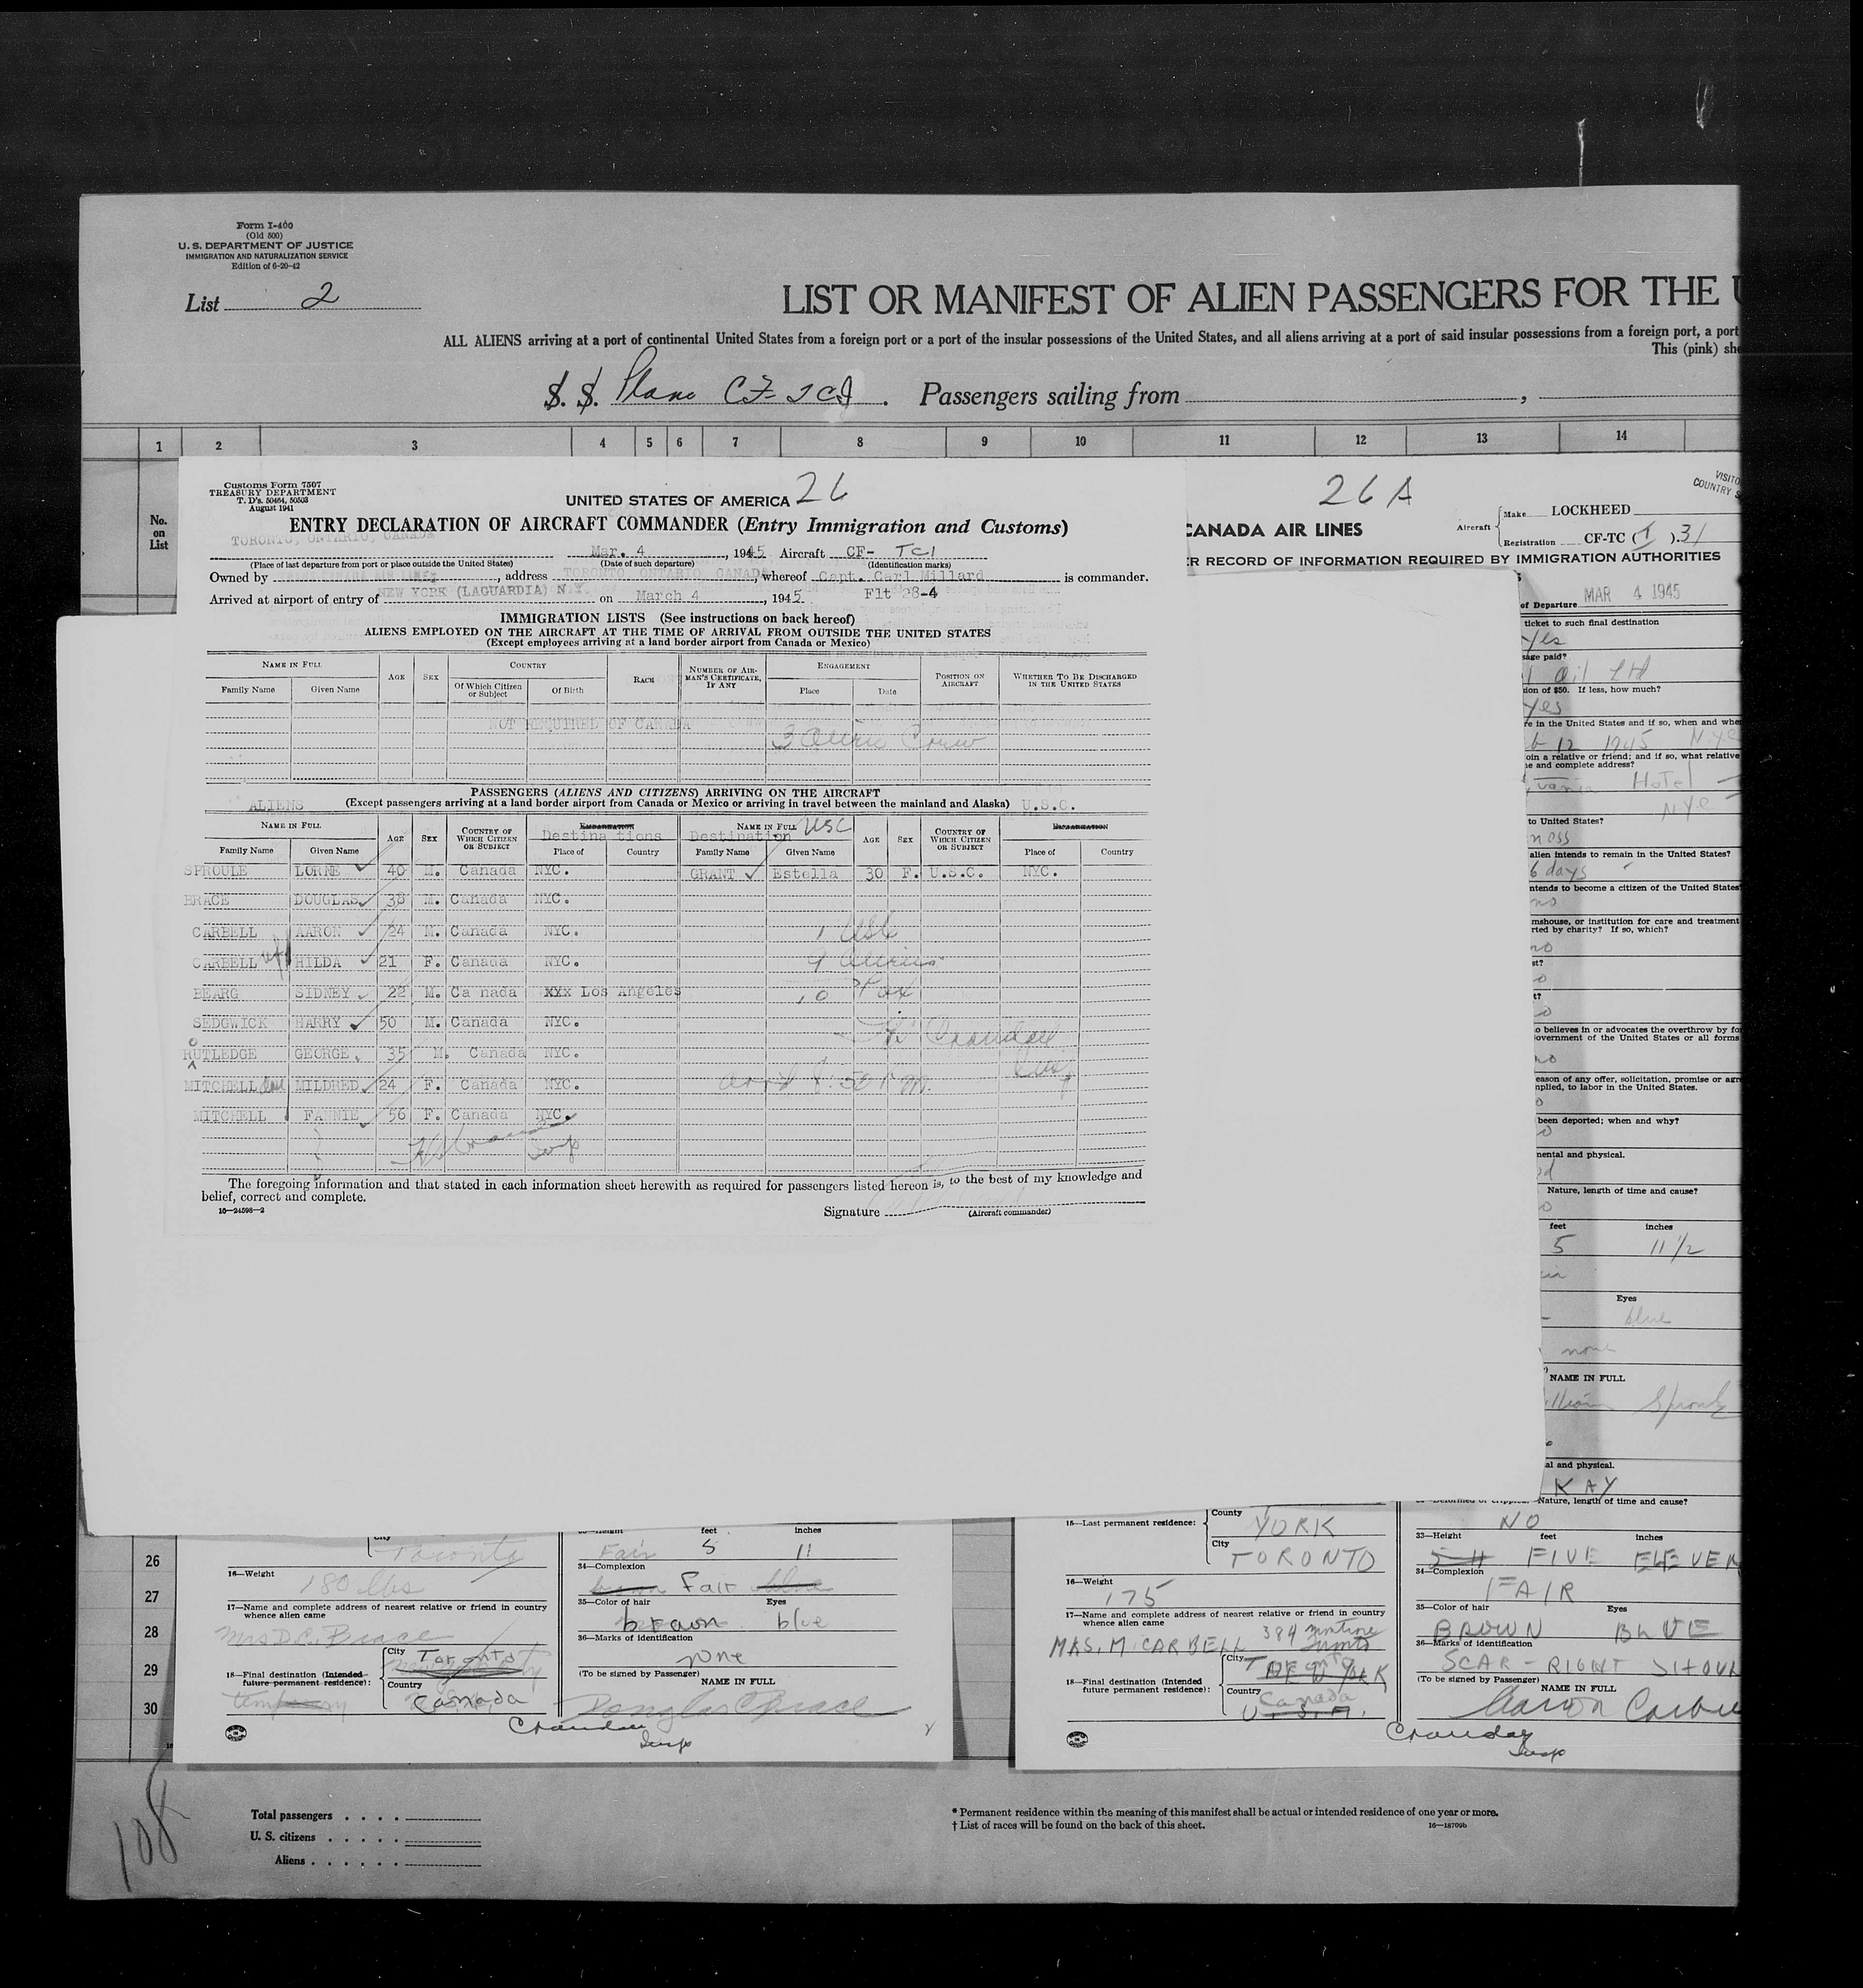 Form I-400
(Old 500)
U. S. DEPARTMENT OF JUSTICE
IMMIGRATION AND NATURALIZATION SERVICE
Edition of 6-20-42
List 2
LIST OR MANIFEST OF ALIEN PASSENGERS FOR THE
ALL ALIENS arriving at a port of continental United States from a foreign port or a port of the insular possessions of the United States, and all aliens arriving at a port of said insular possessions from a foreign port, a port
This (pink)
S. S. Plane CF-TCI. Passengers sailing from
1 2 3 4 5 6 7 8 9 10 11 12 13 14
No. on List
Customs Form 7507
TREASURY DEPARTMENT
T. D's. 50464, 50503
August 1941
UNITED STATES OF AMERICA 26
ENTRY DECLARATION OF AIRCRAFT COMMANDER (Entry Immigration and Customs)
TORONTO, ONTARIO, CANADA Mar. 4, 1945 Aircraft CF- TCI
(Place of last departure from port or place outside the United States) (Date of such departure) (Identification marks)
Owned by TRANS-CANADA AIR LINES, address TORONTO ONTARIO CANADA, whereof Capt. Carl Millard is commander.
Arrived at airport of entry of NEW YORK (LAGUARDIA) N.Y. on March 4, 1945 Flt 28-4
IMMIGRATION LISTS (See instructions on back hereof)
ALIENS EMPLOYED ON THE AIRCRAFT AT THE TIME OF ARRIVAL FROM OUTSIDE THE UNITED STATES
(Except employees arriving at a land border airport from Canada or Mexico)
NAME IN FULL AGE SEX COUNTRY RACE NUMBER OF AIRMAN'S CERTIFICATE, IF ANY ENGAGEMENT POSITION ON AIRCRAFT WHETHER TO BE DISCHARGED IN THE UNITED STATES
Family Name Given Name Of Which Citizen or Subject Of Birth Place Date
NOT REQUIRED OF CANADA
3 Alien Crew
PASSENGERS (ALIENS AND CITIZENS) ARRIVING ON THE AIRCRAFT
ALIENS (Except passengers arriving at a land border airport from Canada or Mexico or arriving in travel between the mainland and Alaska) U.S.C.
NAME IN FULL AGE SEX COUNTRY OF WHICH CITIZEN OR SUBJECT EMBARKATION Destinations NAME IN FULL USC Destination AGE SEX COUNTRY OF WHICH CITIZEN OR SUBJECT EMBARKATION
Family Name Given Name Place of Country Family Name Given Name Place of Country
SPROULE LORNE 40 M. Canada NYC. GRANT Estella 30 F. U.S.C. NYC.
BRACE DOUGLAS 38 M. Canada NYC.
CARBELL AARON 24 M. Canada NYC. 1 USC
CARBELL wf HILDA 21 F. Canada NYC. 9 Aliens
BEARG SIDNEY 22 M. Ca nada XXX Los Angeles 10
SEDGWICK HARRY 50 M. Canada NYC.
RUTLEDGE GEORGE 35 M. Canada NYC.
MITCHELL dau MILDRED 24 F. Canada NYC.
MITCHELL FANNIE 56 F. Canada NYC.
Insp
The foregoing information and that stated in each information sheet herewith as required for passengers listed hereon is, to the best of my knowledge and
belief, correct and complete.
16—24598-2
Signature
(Aircraft commander)
26 A
VISITO
COUNTRY
CANADA AIR LINES
Aircraft Make LOCKHEED
Registration CF-TC (I).31
R RECORD OF INFORMATION REQUIRED BY IMMIGRATION AUTHORITIES
of Departure MAR 4 1945
ticket to such final destination
yes
sage paid?
Oil Ltd
ion of $50. If less, how much?
yes
re in the United States and if so, when and whe
12 1945 N.Y.C
oin a relative or friend; and if so, what relative
e and complete address?
Hotel
NYC
to United States?
ness
alien intends to remain in the United States?
6 days
ntends to become a citizen of the United States
no
mshouse, or institution for care and treatment
rted by charity? If so, which?
no
st?
o believes in or advocates the overthrow by fo
overnment of the United States or all forms
no
eason of any offer, solicitation, promise or agr
mplied, to labor in the United States.
been deported; when and why?
mental and physical.
Nature, length of time and cause?
feet inches
5 11 1/2
Eyes
blue
none
NAME IN FULL
al and physical.
KAY
Nature, length of time and cause?
26
27
28
29
30
City Toronto
feet inches
Fair 5 11
16—Weight
180 lbs
34—Complexion
Fair
35—Color of hair Eyes
brown blue
17—Name and complete address of nearest relative or friend in country
whence alien came
Mrs D.C. Brace
36—Marks of identification
none
18—Final destination (Intended
future permanent residence):
City Toronto
Country Canada
(To be signed by Passenger)
NAME IN FULL
Douglas C Brace
Crandall
Insp
15—Last permanent residence:
County YORK
City TORONTO
16—Weight
175
17—Name and complete address of nearest relative or friend in country
whence alien came
MRS. M. CARBELL 384
18—Final destination (Intended
future permanent residence):
City Toronto NEW YORK
Country Canada U.S.A.
NO
33—Height feet inches
FIVE ELEVEN
34—Complexion
FAIR
35—Color of hair Eyes
BROWN BLUE
36—Marks of identification
SCAR - RIGHT SHOUL
(To be signed by Passenger)
NAME IN FULL
Aaron Carbell
Crandall
Insp
108
Total passengers
U. S. citizens
Aliens
* Permanent residence within the meaning of this manifest shall be actual or intended residence of one year or more.
† List of races will be found on the back of this sheet.
16—18709b